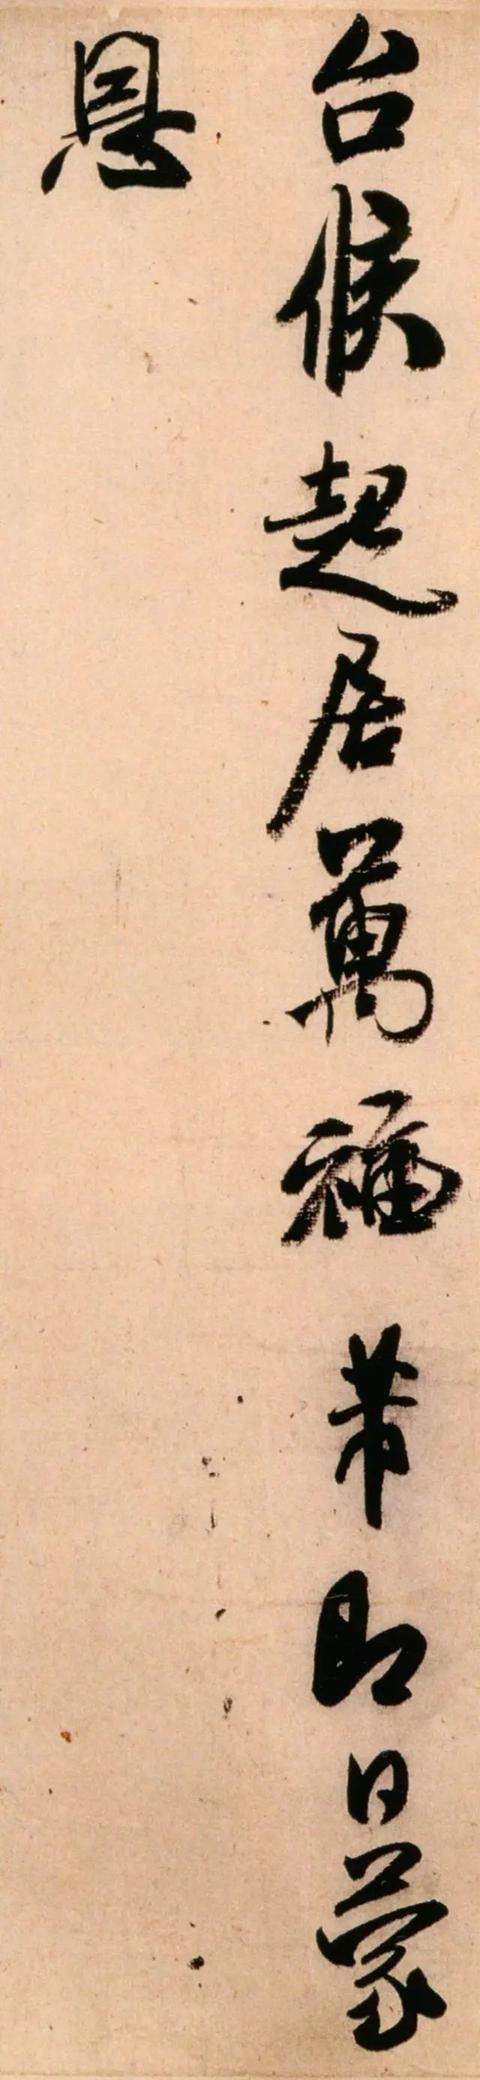 台候起居萬福芾即日蒙
恩